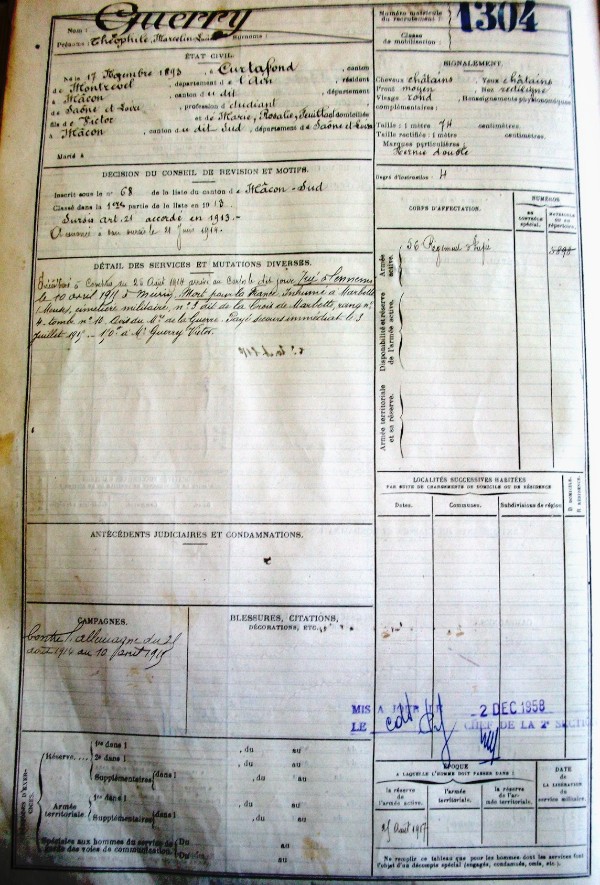 Nom : Guerry
Prénoms : Théophile, Marcelin Surnoms :
Numéro matricule du recrutement : 1304
Classe de mobilisation :
ÉTAT CIVIL.
Né le 17 Novembre 1893, à Curtafond, canton
de Montrevel, département de l'Ain, résidant
à Mâcon, canton du dit, département
de Saône et Loire, profession d'étudiant
fils de Victor et de Marie, Rosalie, domiciliés
à Mâcon, canton du dit - Sud, département de Saône et Loire
Marié à
SIGNALEMENT.
Cheveux châtains Yeux châtains
Front moyen Nez rectiligne
Visage rond Renseignements physionomiques
complémentaires :
Taille : 1 mètre 74 centimètres.
Taille rectifiée : 1 mètre centimètres.
Marques particulières :
Hernie double
Degré d'instruction : 4
DÉCISION DU CONSEIL DE RÉVISION ET MOTIFS.
Inscrit sous le n° 68 de la liste du canton de Mâcon - Sud
Classé dans la 1re partie de la liste en 1913.
Sursis art. 21 accordé en 1913. -
A renoncé à son sursis le 21 Juin 1914.
CORPS D'AFFECTATION.
NUMÉROS
DU CONTRÔLE spécial.
MATRICULE OU AU répertoire.
Armée active.
56 Régiment d'Inf.
Disponibilité et réserve de l'armée active.
Armée territoriale et sa réserve.
DÉTAIL DES SERVICES ET MUTATIONS DIVERSES.
à compter du 26 Août 1914 arrivé au Corps le dit jour Tué à l'ennemi
le 10 avril 1915 à Mort pour la France. Inhumé à Marbotte
(Meuse), cimetière militaire, n° 3 dit de la Croix de Marbotte, rang n°
4 - tombe n° 10. Avis du Mre de la Guerre. Payé secours immédiat le 3
Juillet 1915 150f à Mr Guerry Victor.
LOCALITÉS SUCCESSIVES HABITÉES
PAR SUITE DE CHANGEMENTS DE DOMICILE OU DE RÉSIDENCE
Dates. Communes. Subdivisions de région
D. DOMICILE. R. RÉSIDENCE.
ANTÉCÉDENTS JUDICIAIRES ET CONDAMNATIONS.
CAMPAGNES.
Contre l'Allemagne du 26
août 1914 au 10 avril 1915
BLESSURES, CITATIONS,
DÉCORATIONS, ETC.
MIS A JOUR LE 2 DEC 1958
LE CHEF DE LA 2e SECTION
Réserve....
1re dans l , du au
2e dans l , du au
Supplémentaires dans l , du au
Armée territoriale.
1re dans l , du au
Supplémentaires dans l , du au
Spéciales aux hommes du service de garde des voies de communication.
Du au
Du au
ÉPOQUE
A LAQUELLE L'HOMME DOIT PASSER DANS :
la réserve de l'armée active.
l'armée territoriale.
la réserve de l'armée territoriale.
DATE DE LA LIBÉRATION du service militaire.
Ne remplir ce tableau que pour les hommes dont les services font l'objet d'un décompte spécial (engagés, condamnés, omis, etc.).